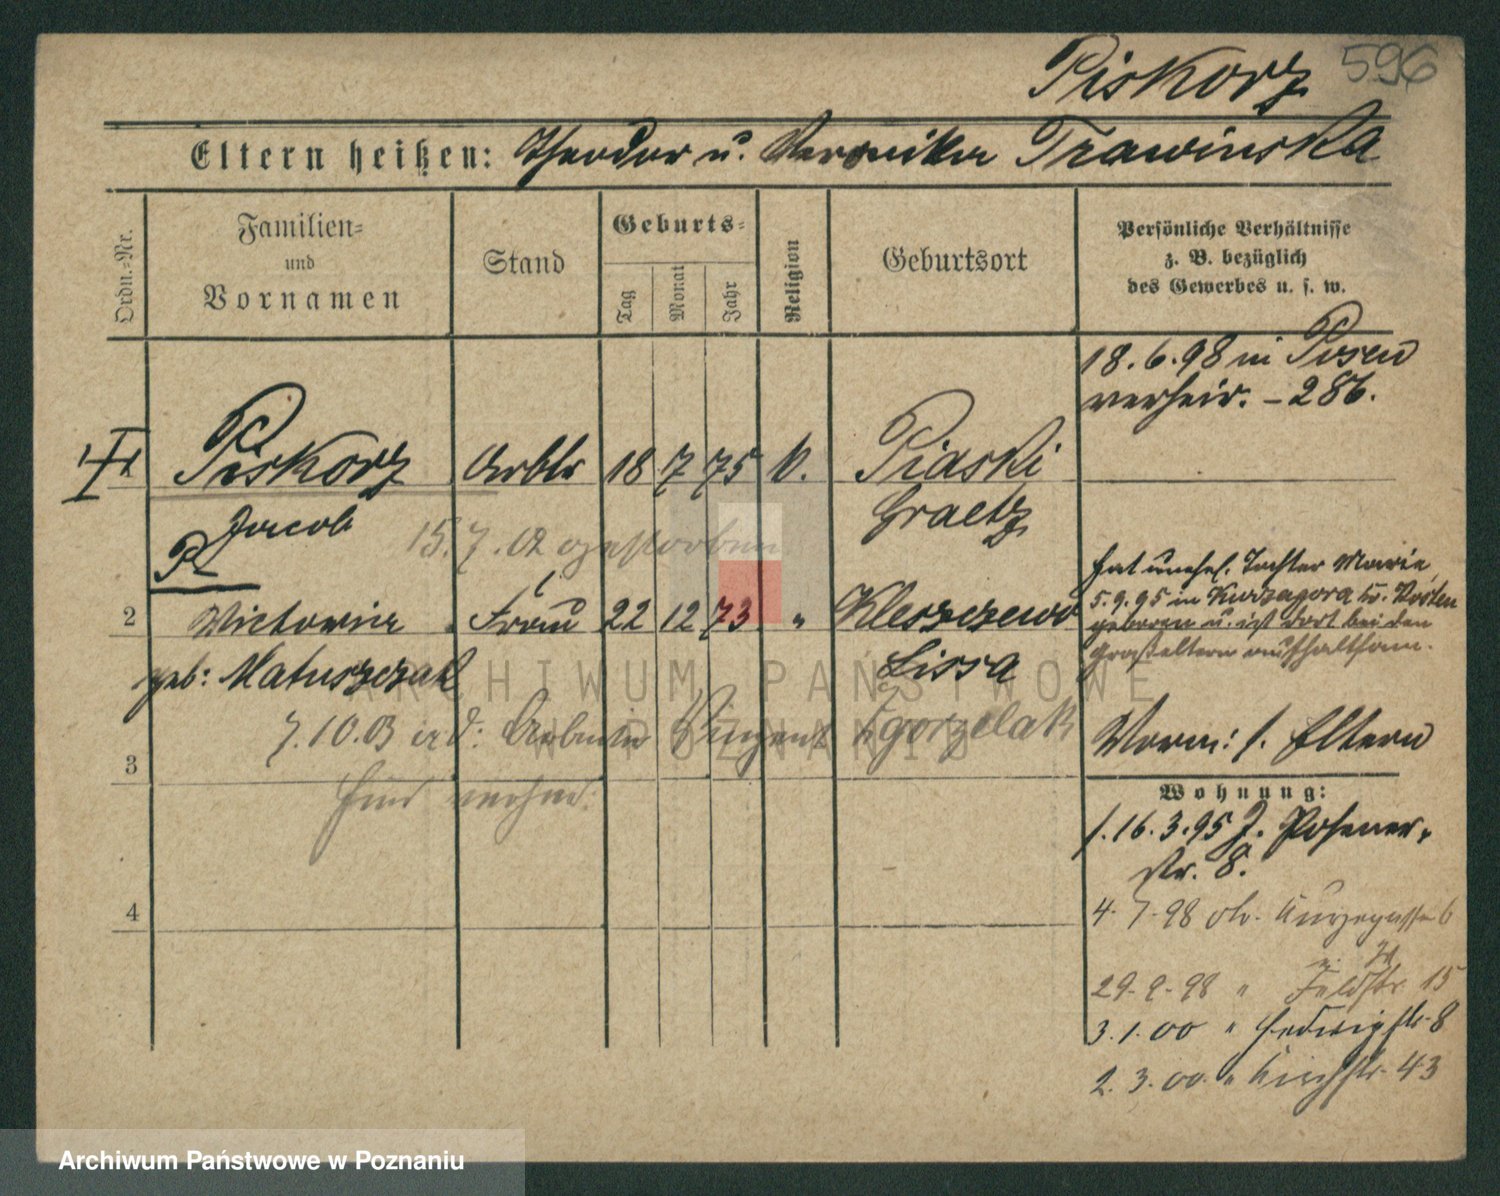 Piskorz 596
Eltern heißen: Theodor u. Veronika Trawinska
Ordn.-Nr.
Familien-
und
Vornamen
Stand
Geburts-
Tag
Monat
Jahr
Religion
Geburtsort
Persönliche Verhältnisse
z. B. bezüglich
des Gewerbes u. s. w.
18.6.98 in Posen
verheir. - 286.
1 Piskorz Arbtr 18 7 75 k. Piaski
Jacob Graetz
15.7.02 gestorben
hat unehel. Tochter Marie,
5.9.95 in Kurzagora Kr. Kosten
geboren u. ist dort bei den
Großeltern aufhaltsam.
2 Victoria Frau 22 12 73 " Kleszczewo
geb: Matuszczak Lissa
7.10.03 Vinzent Zgorzelak
3
Vorm: s. Eltern
Wohnung:
s. 16.3.95 J. Posener-
str. 8.
4
4.7.98 Kurzegasse 6
29.9.98 " Feldstr 15
3.1.00 " Hedwigstr. 8
2.3.00 " Kirchstr. 43
ARCHIWUM PAŃSTWOWE
W POZNANIU
Archiwum Państwowe w Poznaniu